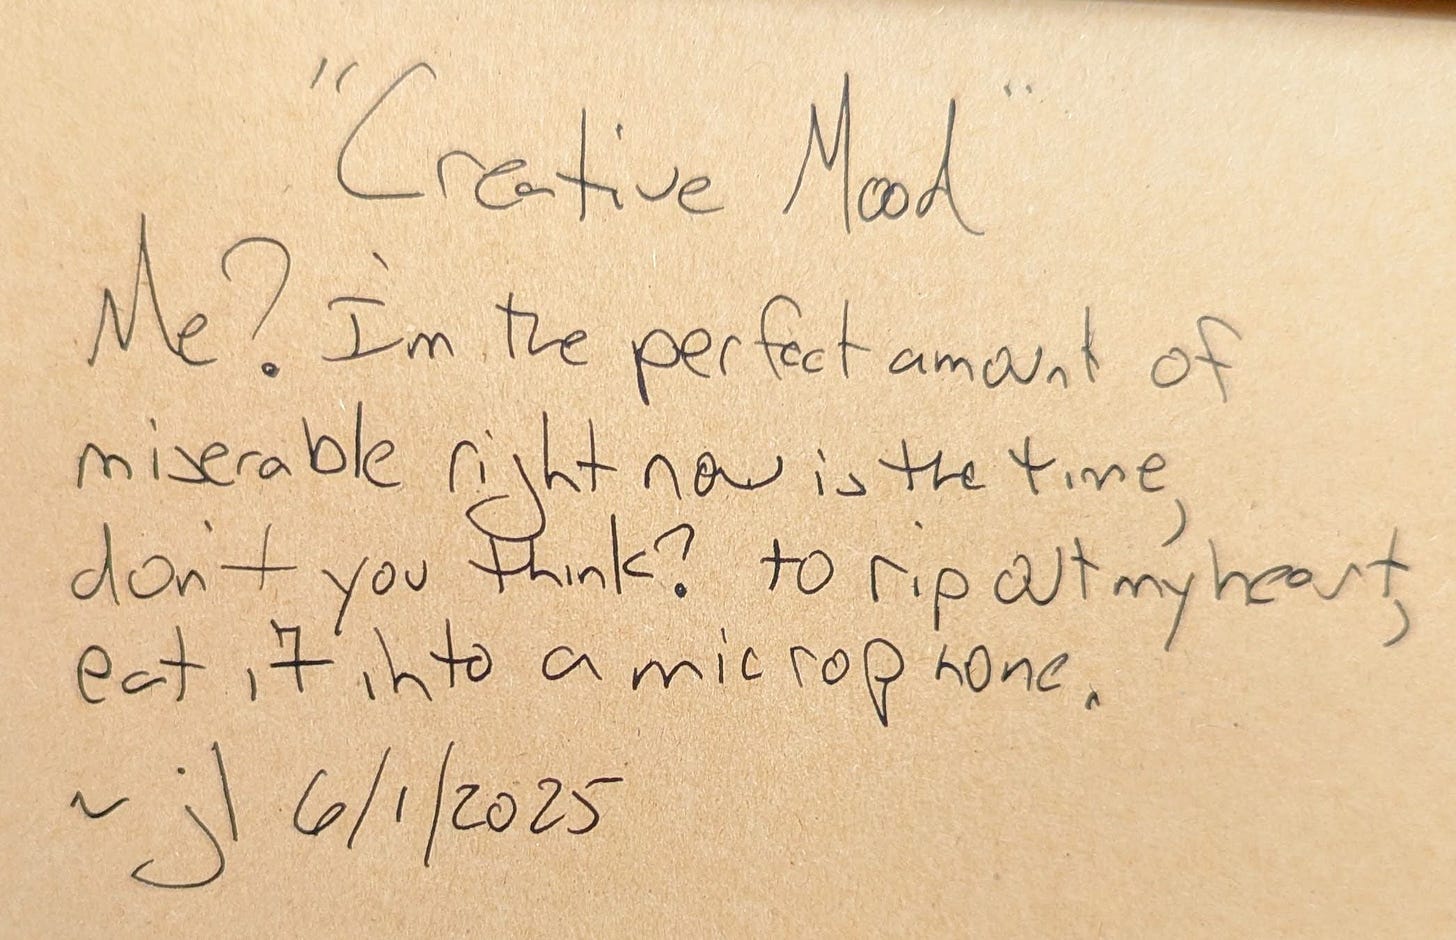 "Creative Mood"
Me? I'm the perfect amount of
miserable right now is the time,
don't you think? to rip out my heart,
eat it into a microphone.
~ jl 6/1/2025